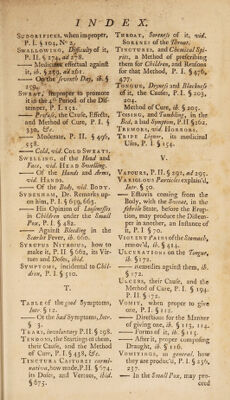 INDEX.
SUDORIFICKS, when improper,
P. I. § 104, No 2.
SWALLOWING, Difficulty of it,
P. II. § 274, ad 278.
— Medicines effectual against
it, ib. § 259, ad 261.
— On the seventh Day, ib. §
259.
SWEAT, improper to promote
it in the 4th Period of the Dis-
temper, P. I. § 152.
— Profuse, the Cause, Effects,
and Method of Cure, P. I. §
330, &c.
— Moderate, P. II. § 496,
558.
— Cold, vid. COLD SWEATS.
SWELLING, of the Head and
Face, vid. HEAD Swelling.
— Of the Hands and Arms,
vid. HANDS.
— Of the Body, vid. BODY.
SYDENHAM, Dr. Remarks up-
on him, P. I. § 659, 665.
— His Opinion of Looseness
in Children under the Small
Pox, P. I. § 482.
— Against Bleeding in the
Scarlet Fever, ib. 660.
SYRUPUS NITROSUS, how to
make it, P. II § 662, its Vir-
tues and Doses, ibid.
SYMPTOMS, incidental to Chil-
dren, P. I. § 510.
T.
TABLE of the good Symptoms,
Intr. § 12.
— Of the bad Symptoms, Intr.
§ 3.
TEARS, involuntary P. II. § 298.
TENDONS, the Startings of them,
their Cause, and the Method
of Cure, P. I. § 438, &c.
TINCTURA CASTOREI carmi-
nativa, how made, P. II. § 674,
its Doses, and Vertues, ibid.
§ 675.
THROAT, Soreness of it, vid.
SORENESS of the Throat.
TINCTURES, and Chemical Spi-
rits, a Method of prescribing
them for Children, and Reasons
for that Method, P. I. § 476,
477.
TONGUE, Dryness and Blackness
of it, the Cause, P. I. § 203,
204.
Method of Cure, ib. § 205.
TOSSING, and Tumbling, in the
Bed, a bad Symptom, P. II § 262.
TREMORS, vid. HORRORS.
TRIPE Liquor, its medicinal
Uses, P. I § 154.
V.
VAPOURS, P. II. § 291, ad 295.
VARIOLOUS Particles explain'd,
Intr. § 50.
— Effluvia coming from the
Body, with the Sweat, in the
febrile State, before the Erup-
tion, may produce the Distem-
per in another, an Instance of
it, P. I. § 70.
VIOLENT PAINS of the Stomach,
remov'd, ib. § 414.
ULCERATIONS on the Tongue,
ib. § 177.
— Remedies against them, ib.
§ 172.
ULCERS, their Cause, and the
Method of Cure, P. I. § 194.
P. II § 172.
VOMIT, when proper to give
one, P. I. § 112.
— Directions for the Manner
of giving one, ib. § 113, 114.
— Forms of it, ib. § 115.
— After it, proper composing
Draught, ib. § 116.
VOMITINGS, in general, how
they are produc'd, P. I § 236,
237.
— In the Small Pox, may pro-
ceed